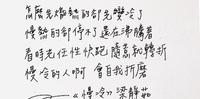 怎麼先炽熱的卻先變冷了
慢熱的卻停不了還在沸騰著
看時光任性快跑 隨意就轉折
慢冷的人啊 會自我折磨
《慢冷》梁靜茹